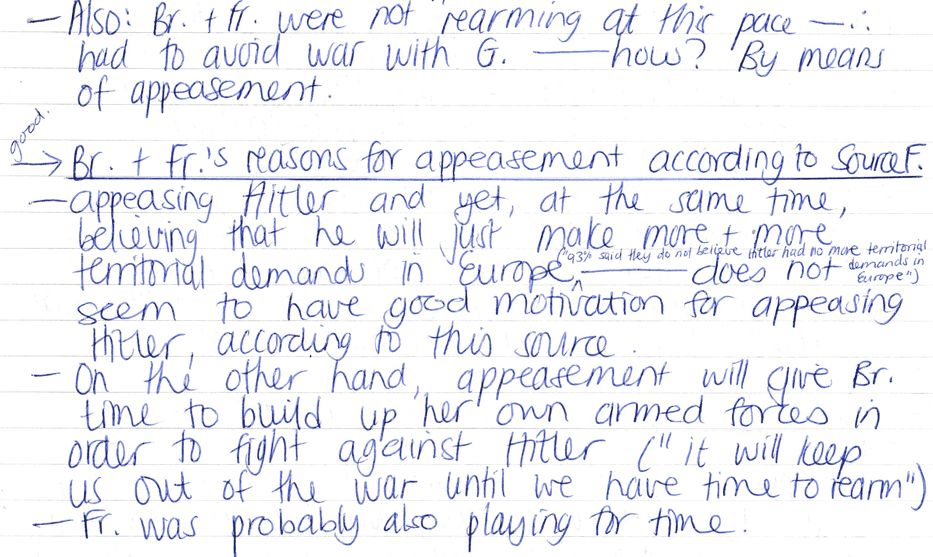 — Also: Br. + Fr. were not rearming at this pace — ∴
had to avoid war with G. —— how? By means
of appeasement.
good.
→ Br. + Fr.'s reasons for appeasement according to Source F.
— appeasing Hitler and yet, at the same time,
believing that he will just make more + more
("93% said they do not believe Hitler had no more territorial
territorial demands in Europe, ^ —— does not demands in
Europe")
seem to have good motivation for appeasing
Hitler, according to this source.
— On the other hand, appeasement will give Br.
time to build up her own armed forces in
order to fight against Hitler ("it will keep
us out of the war until we have time to rearm")
— Fr. was probably also playing for time.